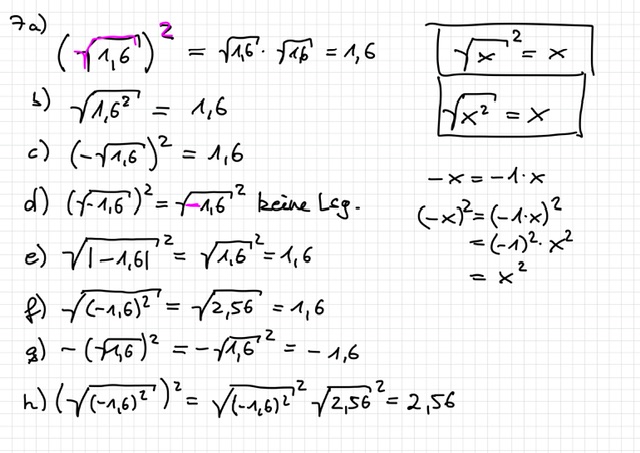 7a) (√1,6)² = √1,6 · √1,6 = 1,6
b) √1,6² = 1,6
c) (-√1,6)² = 1,6
d) (√-1,6)² = √-1,6² keine Lsg.
e) √|-1,6|² = √1,6² = 1,6
f) √(-1,6)² = √2,56 = 1,6
g) -(√1,6)² = -√1,6² = -1,6
h) (√(-1,6)²)² = √(-1,6)²² √2,56² = 2,56
√x² = x
√x² = x
-x = -1·x
(-x)² = (-1·x)²
= (-1)²·x²
= x²